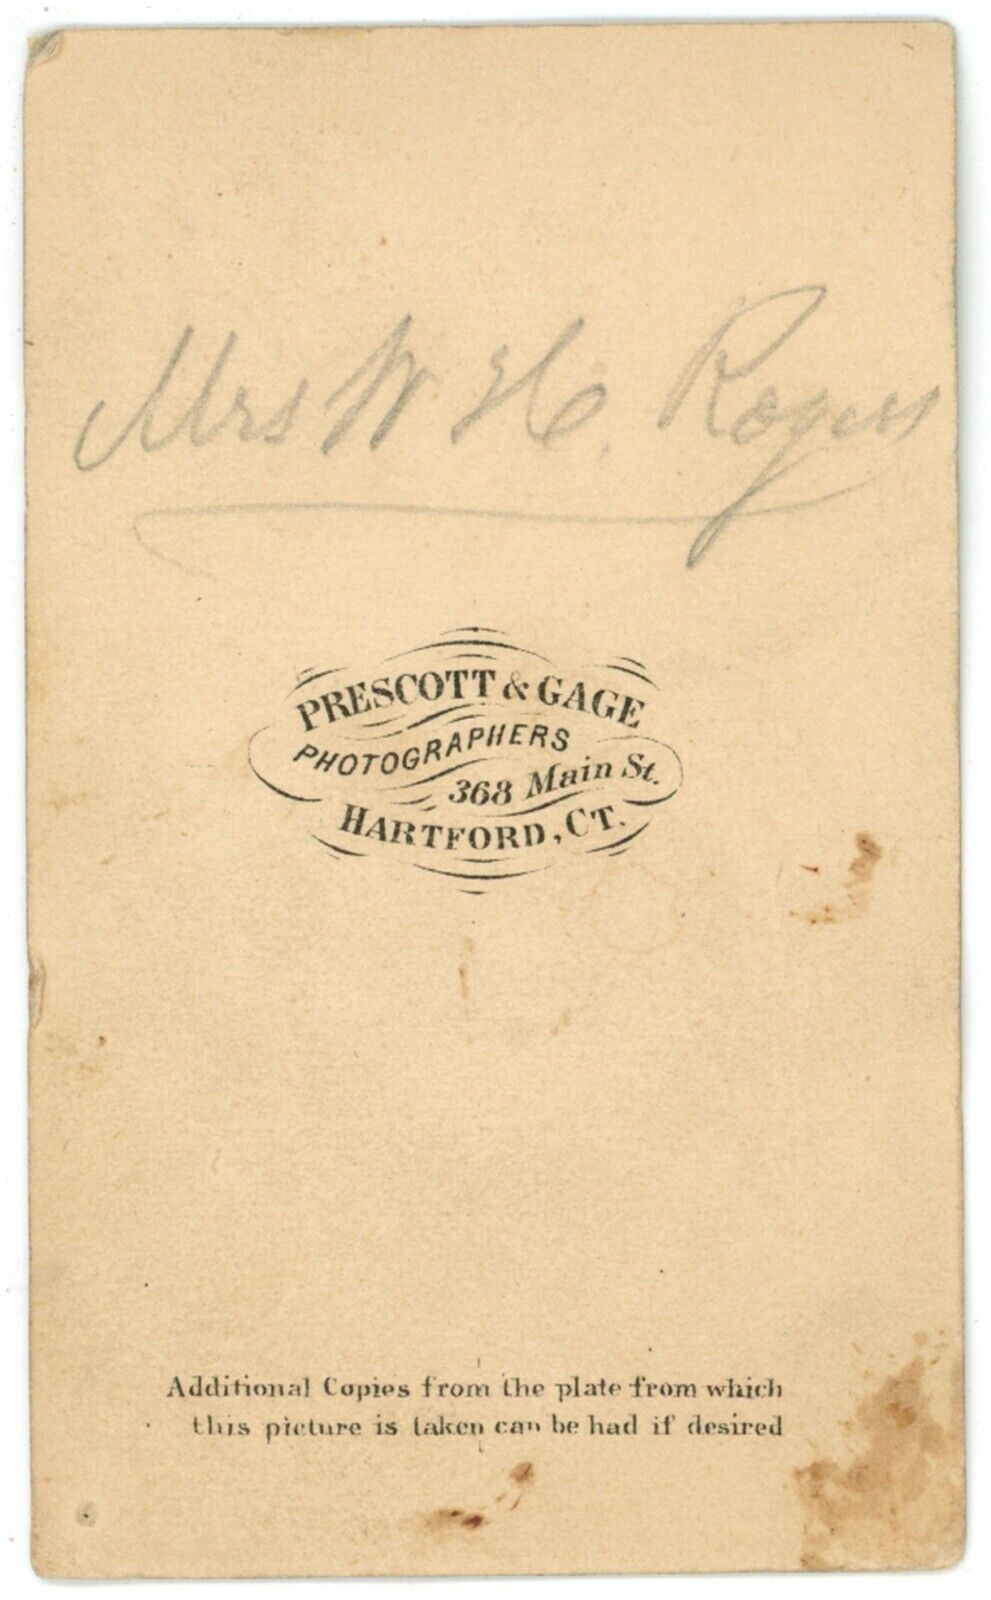 Mrs W H. Rogers
PRESCOTT & GAGE
PHOTOGRAPHERS
368 Main St.
HARTFORD, CT.
Additional Copies from the plate from which
this picture is taken can be had if desired